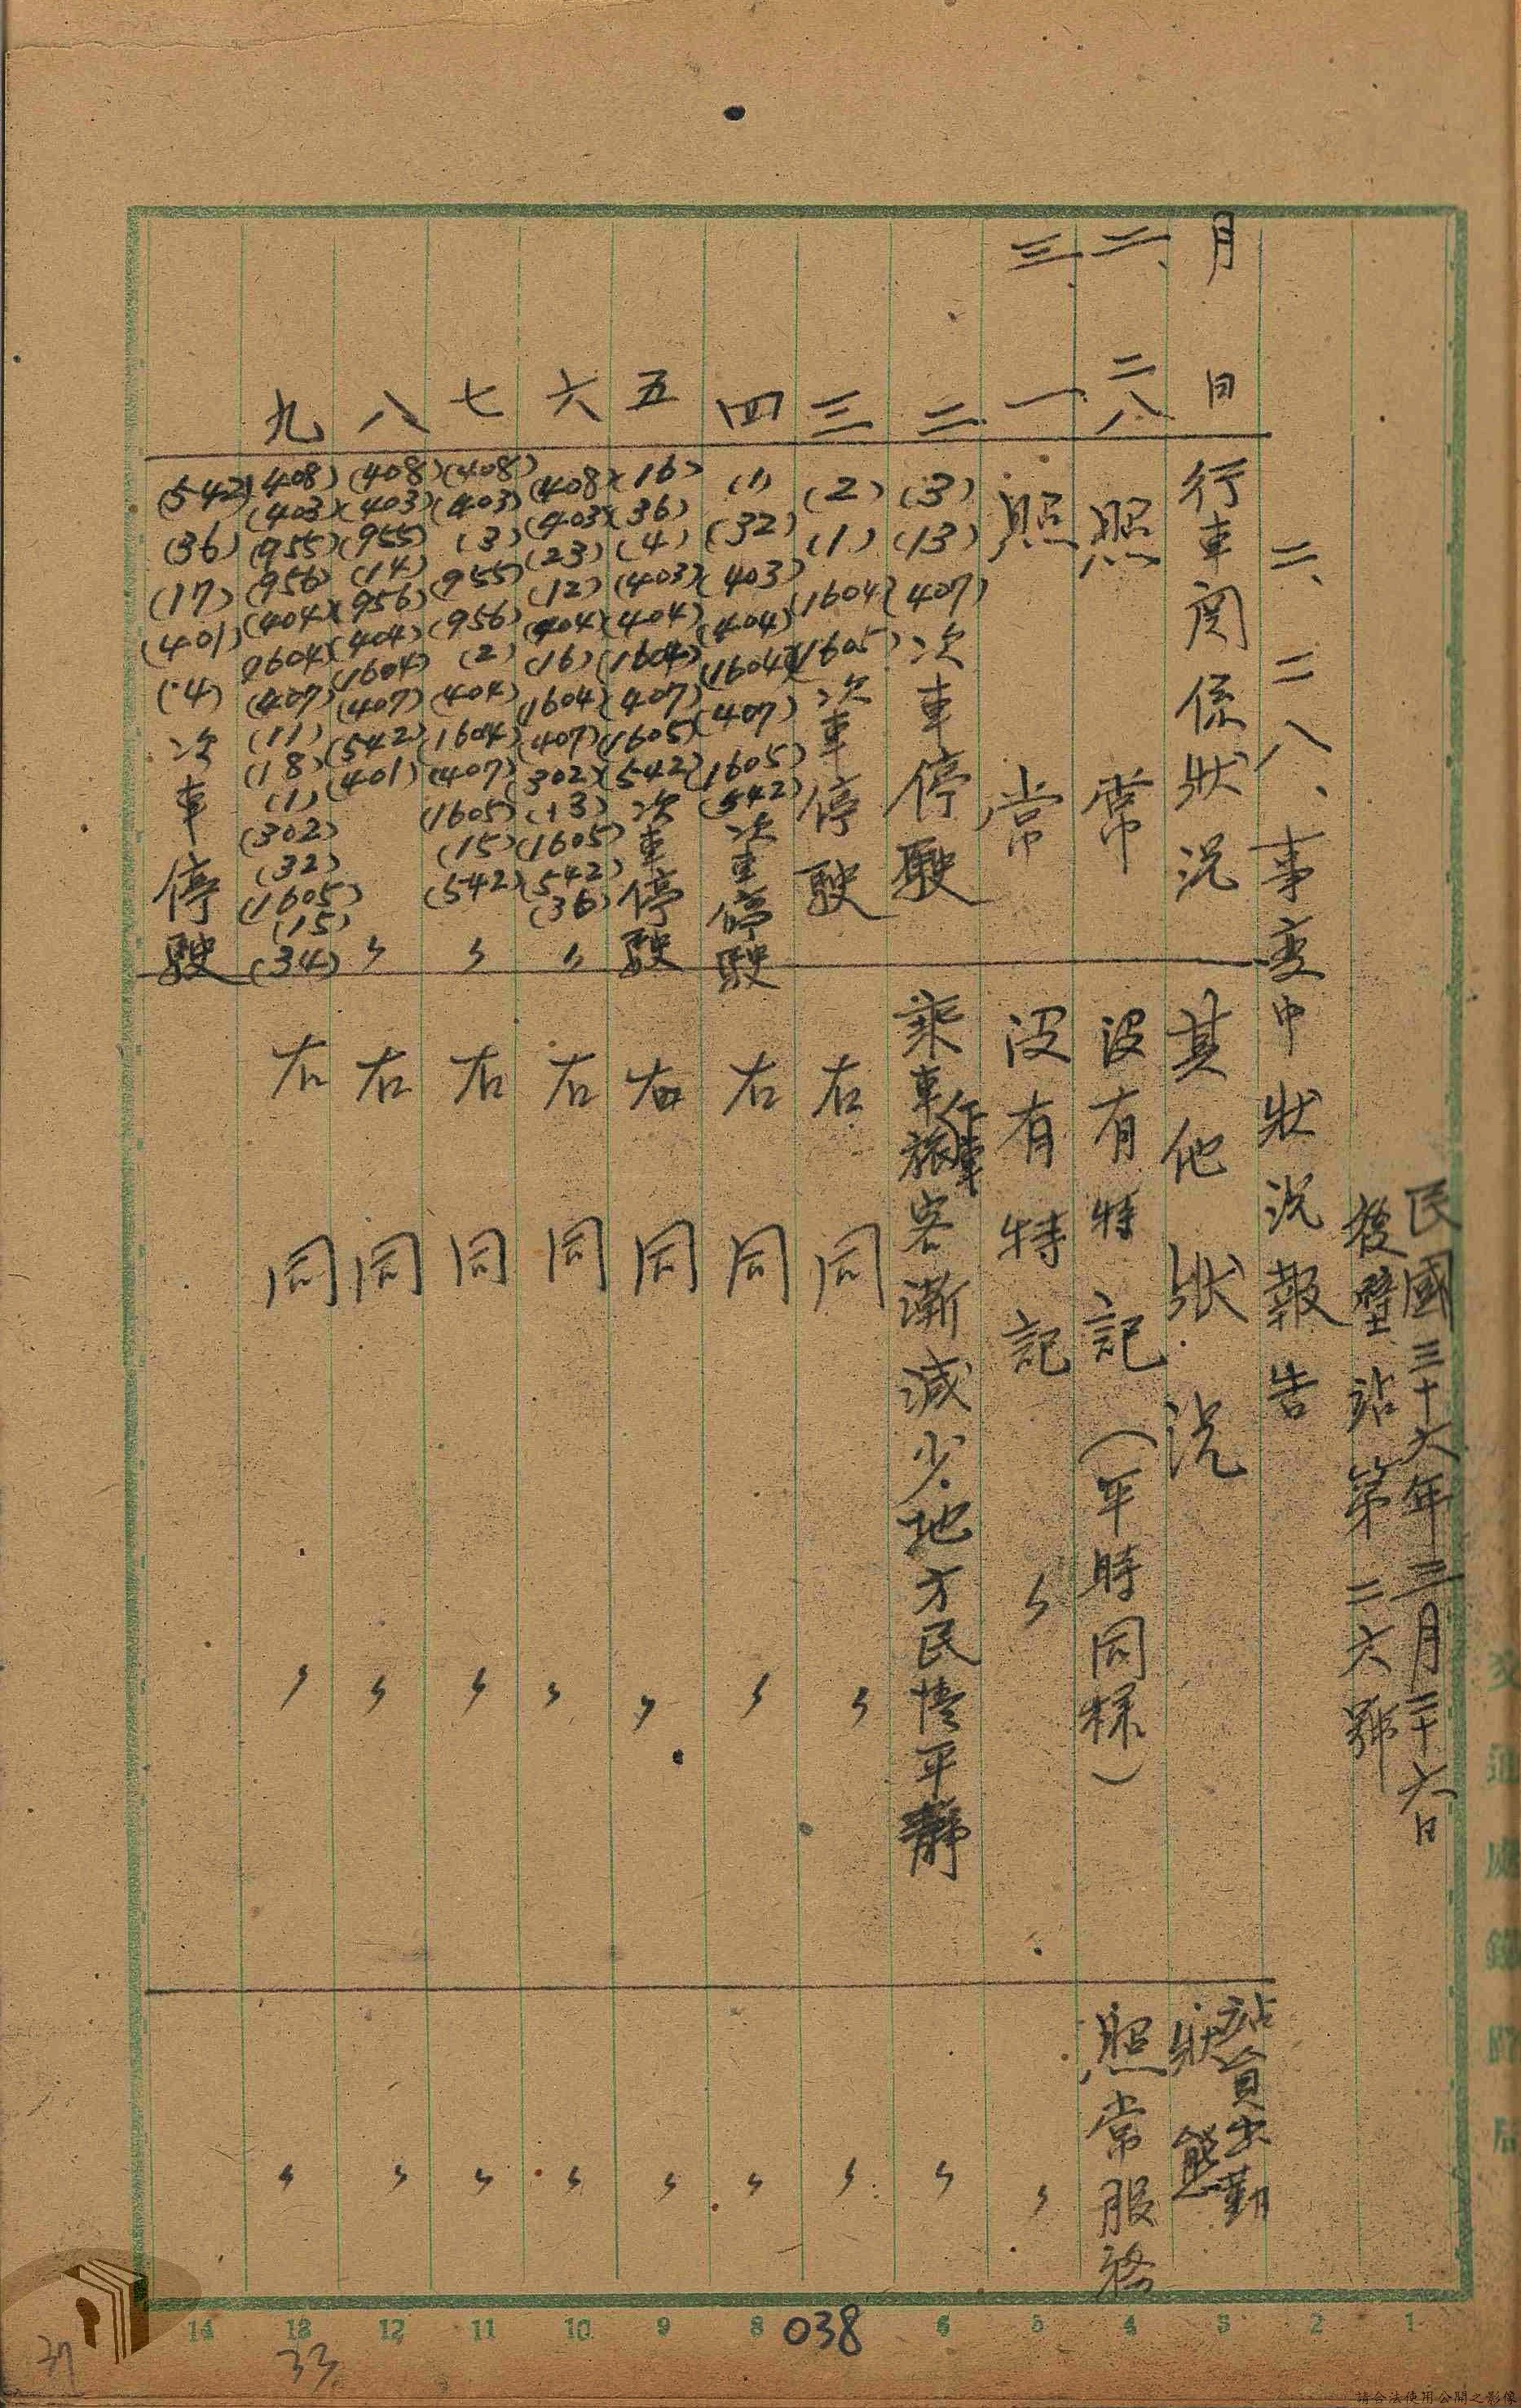 民國三十六年三月二十六日
後壁站第二六號
二、二八、事变中狀況報告
月 日 行車関係狀況 其他狀況 站員出勤狀態
二、 二八 照常 没有特記（平時同様） 照常服務
三、 一 照常 没有特記 〃 〃
二 (3) (13) (407) 次車停駛 乘車旅客漸減少地方民情平静 〃
三 (2) (1) (1604) (1605) 次車停駛 右同 〃 〃
四 (1) (32) (403) (404) (1604) (407) (1605) (542) 次車停駛 右同 〃 〃
五 (16) (36) (4) (403) (404) (1604) (407) (1605) (542) 次車停駛 右同 〃 〃
六 (408) (403) (23) (12) (404) (16) (1604) (407) (302) (13) (1605) (542) (36) 〃 右同 〃 〃
七 (408) (403) (3) (955) (956) (2) (404) (1604) (407) (1605) (15) (542) 〃 右同 〃 〃
八 (408) (403) (955) (14) (956) (404) (1604) (407) (542) (401) 〃 右同 〃 〃
九 (408) (403) (955) (956) (404) (1604) (407) (11) (18) (1) (302) (32) (1605) (15) (34) 右同 〃 〃
(542) (36) (17) (401) (4) 次車停駛
交通處鐵路局
14 13 12 11 10 9 8 6 5 4 3 2 1
038
33
請合法使用公開之影像